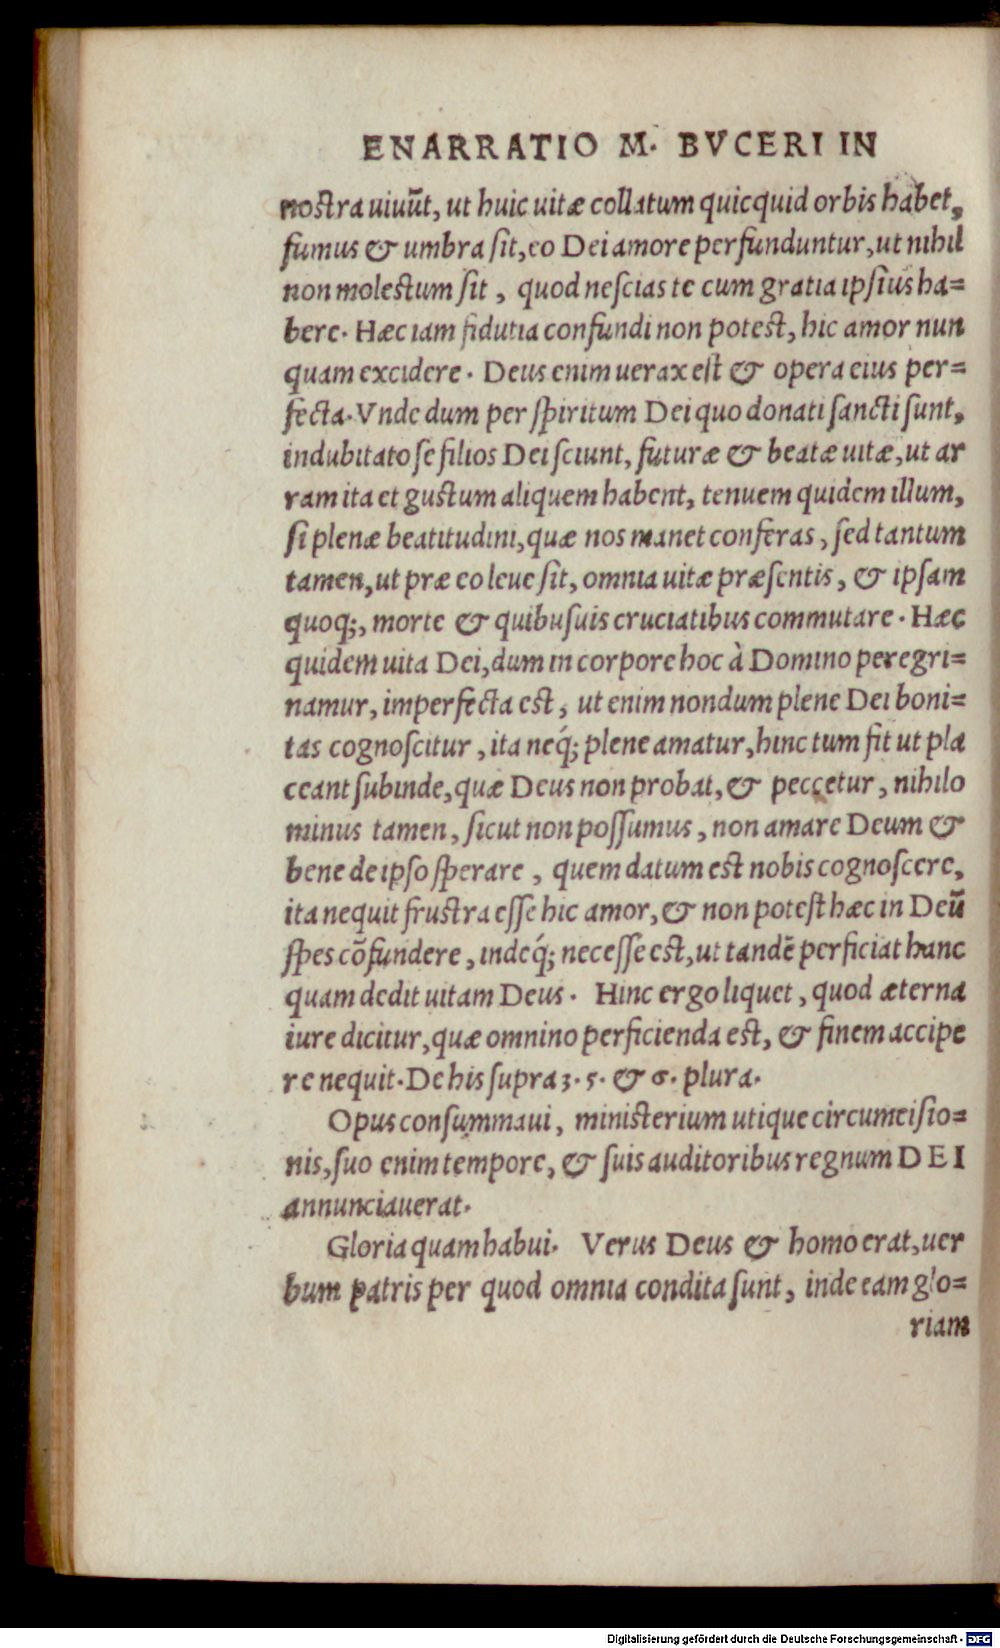 ENARRATIO M. BVCERI IN
nostra uiuũt, ut huic uitæ collatum quicquid orbis habet,
fumus & umbra sit, eo Dei amore perfunduntur, ut nihil
non molestum sit, quod nescias te cum gratia ipsius ha=
bere. Hæc iam fidutia confundi non potest, hic amor nun
quam excidere. Deus enim uerax est & opera eius per=
fecta. Vnde dum per spiritum Dei quo donati sancti sunt,
indubitato se filios Dei sciunt, futuræ & beatæ uitæ, ut ar
ram ita et gustum aliquem habent, tenuem quidem illum,
si plenæ beatitudini, quæ nos manet conferas, sed tantum
tamen, ut præ eo leue sit, omnia uitæ præsentis, & ipsam
quoq;, morte & quibusuis cruciatibus commutare. Hæc
quidem uita Dei, dum in corpore hoc à Domino peregri=
namur, imperfecta est, ut enim nondum plene Dei boni=
tas cognoscitur, ita neq́; plene amatur, hinc tum fit ut pla
ceant subinde, quæ Deus non probat, & peccetur, nihilo
minus tamen, sicut non possumus, non amare Deum &
bene de ipso sperare, quem datum est nobis cognoscere,
ita nequit frustra esse hic amor, & non potest hæc in Deũ
spes cõfundere, indeq́; necesse est, ut tandẽ perficiat hanc
quam dedit uitam Deus. Hinc ergo liquet, quod æterna
iure dicitur, quæ omnino perficienda est, & finem accipe
re nequit. De his supra 3. 5. & 6. plura.
Opus consummaui, ministerium utique circumcisio=
nis, suo enim tempore, & suis auditoribus regnum DEI
annunciauerat.
Gloria quam habui. Verus Deus & homo erat, uer
bum patris per quod omnia condita sunt, inde eam glo=
riam
Digitalisierung gefördert durch die Deutsche Forschungsgemeinschaft - DFG